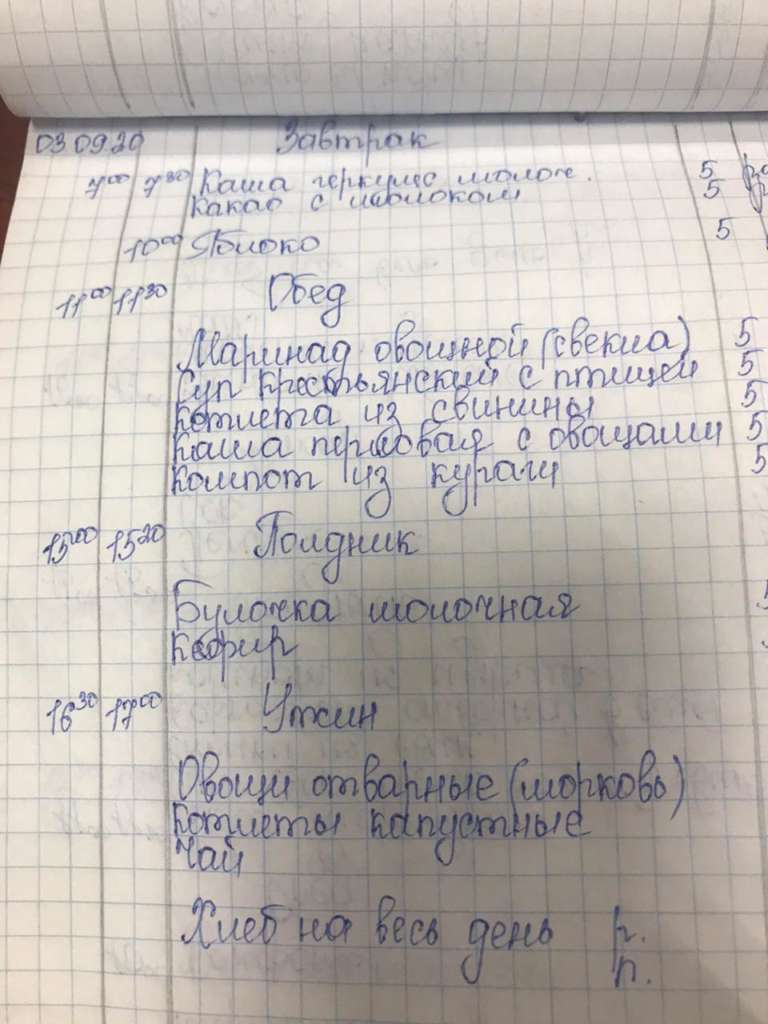 03.09.20 Завтрак
7⁰⁰ 7³⁰ Каша геркулес молоч. 5
Какао с молоком 5
10⁰⁰ Яблоко 5
11⁰⁰ 11³⁰ Обед
Маринад овощной (свекла) 5
Суп крестьянский с птицей 5
Котлета из свинины 5
Каша перловая с овощами 5
Компот из кураги 5
15⁰⁰ 15²⁰ Полдник
Булочка молочная
Кефир
16³⁰ 17⁰⁰ Ужин
Овощи отварные (морковь)
Котлеты капустные
Чай
Хлеб на весь день р.
п.